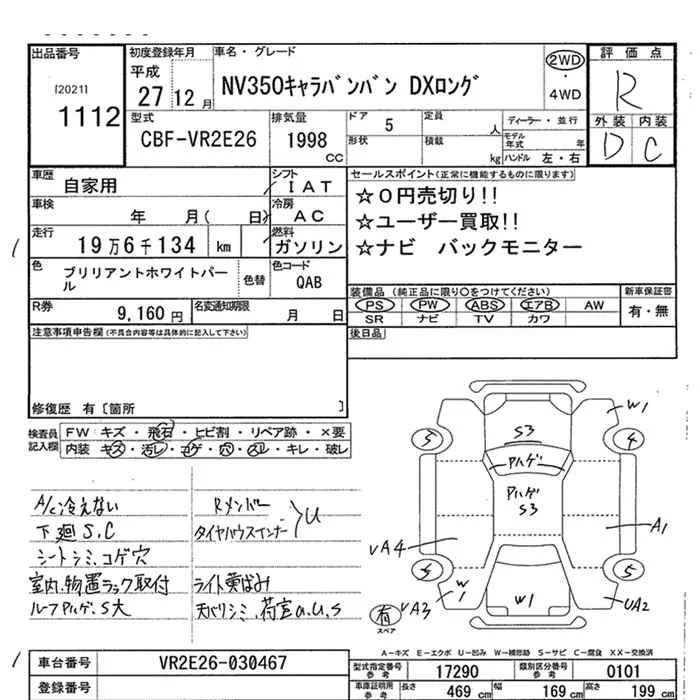 出品番号 初度登録年月 車名・グレード 評価点
[2021] 平成 NV350キャラバンバン DXロング 2WD ・ 4WD R
1112 27 12月
型式 排気量 ドア 5 定員 人 ディーラー・並行 外装 内装
CBF-VR2E26 1998 CC 形状 積載 kg モデル年式 年 D C
ハンドル 左・右
車歴 自家用 シフト IAT セールスポイント(正常に機能するものに限ります)
車検 年 月( 日) 冷房 AC ☆0円売切り!!
☆ユーザー買取!!
走行 19万6千134 km 燃料 ガソリン ☆ナビ バックモニター
色 ブリリアントホワイトパール 色替 色コード QAB
装備品 (純正品に限り○をつけてください) 新車保証書
R券 9,160円 名変通知期限 月 日 PS PW ABS エアB AW 有・無
SR ナビ TV カワ
注意事項申告欄(不具合内容等は具体的に記入して下さい) 後日品
修復歴 有[箇所 ]
検査員記入欄 FW キズ・飛石・ヒビ割・リペア跡・×要
内装 キズ・汚レ・コゲ・穴・スレ・キレ・破レ
A/C冷えない Rメンバー
下廻S.C タイヤハウスインナー U
シートシミ、コゲ穴
室内、物置ラック取付 ライト黄ばみ
ルーフPハゲ、S大 天バリシミ、荷室a.U.S
W1
5 S3 4
Pハゲ
Pハゲ
S3
A1
UA4
5 5
W1 W1
有 UA3 UA2
スペア
A－キズ E－エクボ U－凹み W－補修跡 S－サビ C－腐食 XX－交換済
車台番号 VR2E26-030467 型式指定番号 参考 17290 類別区分番号 参考 0101
登録番号 車庫証明用 参考 長さ 469 cm 幅 169 cm 高さ 199 cm